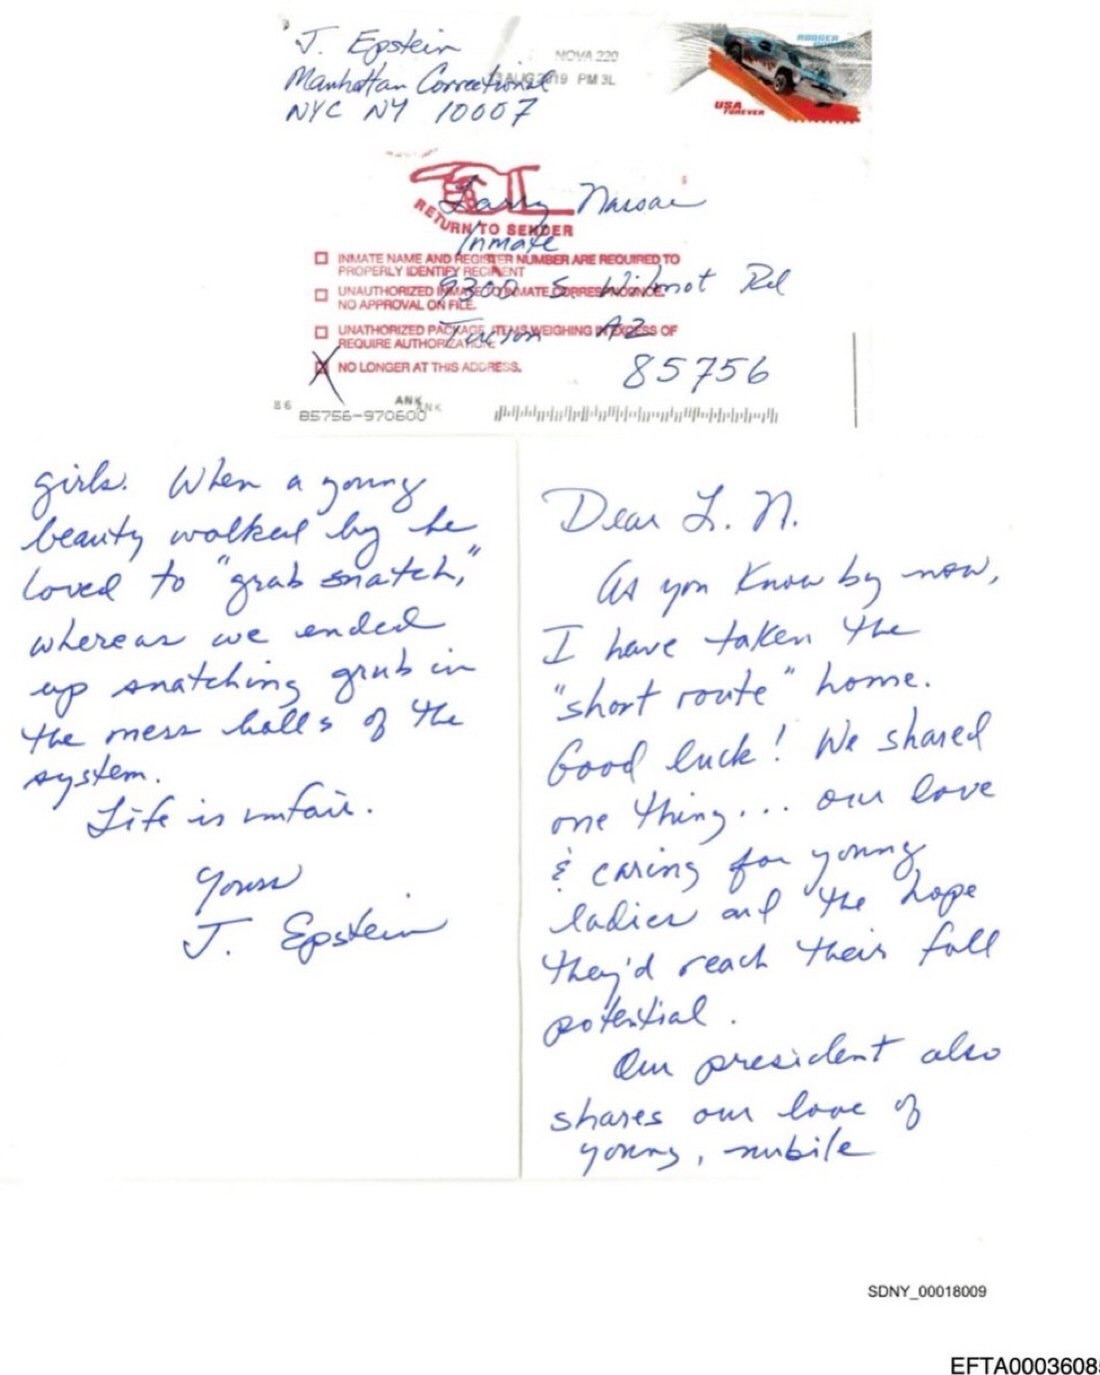 J. Epstein
Manhattan Correctional
NYC NY 10007
NOVA 220
AUG 2019 PM 3L
USA
FOREVER
Larry Nassar
RETURN TO SENDER
Inmate
INMATE NAME AND REGISTER NUMBER ARE REQUIRED TO
PROPERLY IDENTIFY RECIPIENT
9300 S. Wilmot Rd
UNAUTHORIZED INMATE TO INMATE
NO APPROVAL ON FILE.
Tucson AZ
UNATHORIZED PACKAGE ITEMS WEIGHING IN EXCESS OF
REQUIRE AUTHORIZATION.
NO LONGER AT THIS ADDRESS.
85756
86
ANK
ANK
85756-970600
Dear L. N.
As you know by now,
I have taken the
"short route" home.
Good luck! We shared
one thing... our love
& caring for young
ladies and the hope
they'd reach their full
potential.
Our president also
shares our love of
young, nubile
girls. When a young
beauty walked by he
loved to "grab snatch,"
whereas we ended
up snatching grub in
the mess halls of the
system.
Life is unfair.
Yours
J. Epstein
SDNY_00018009
EFTA0003608